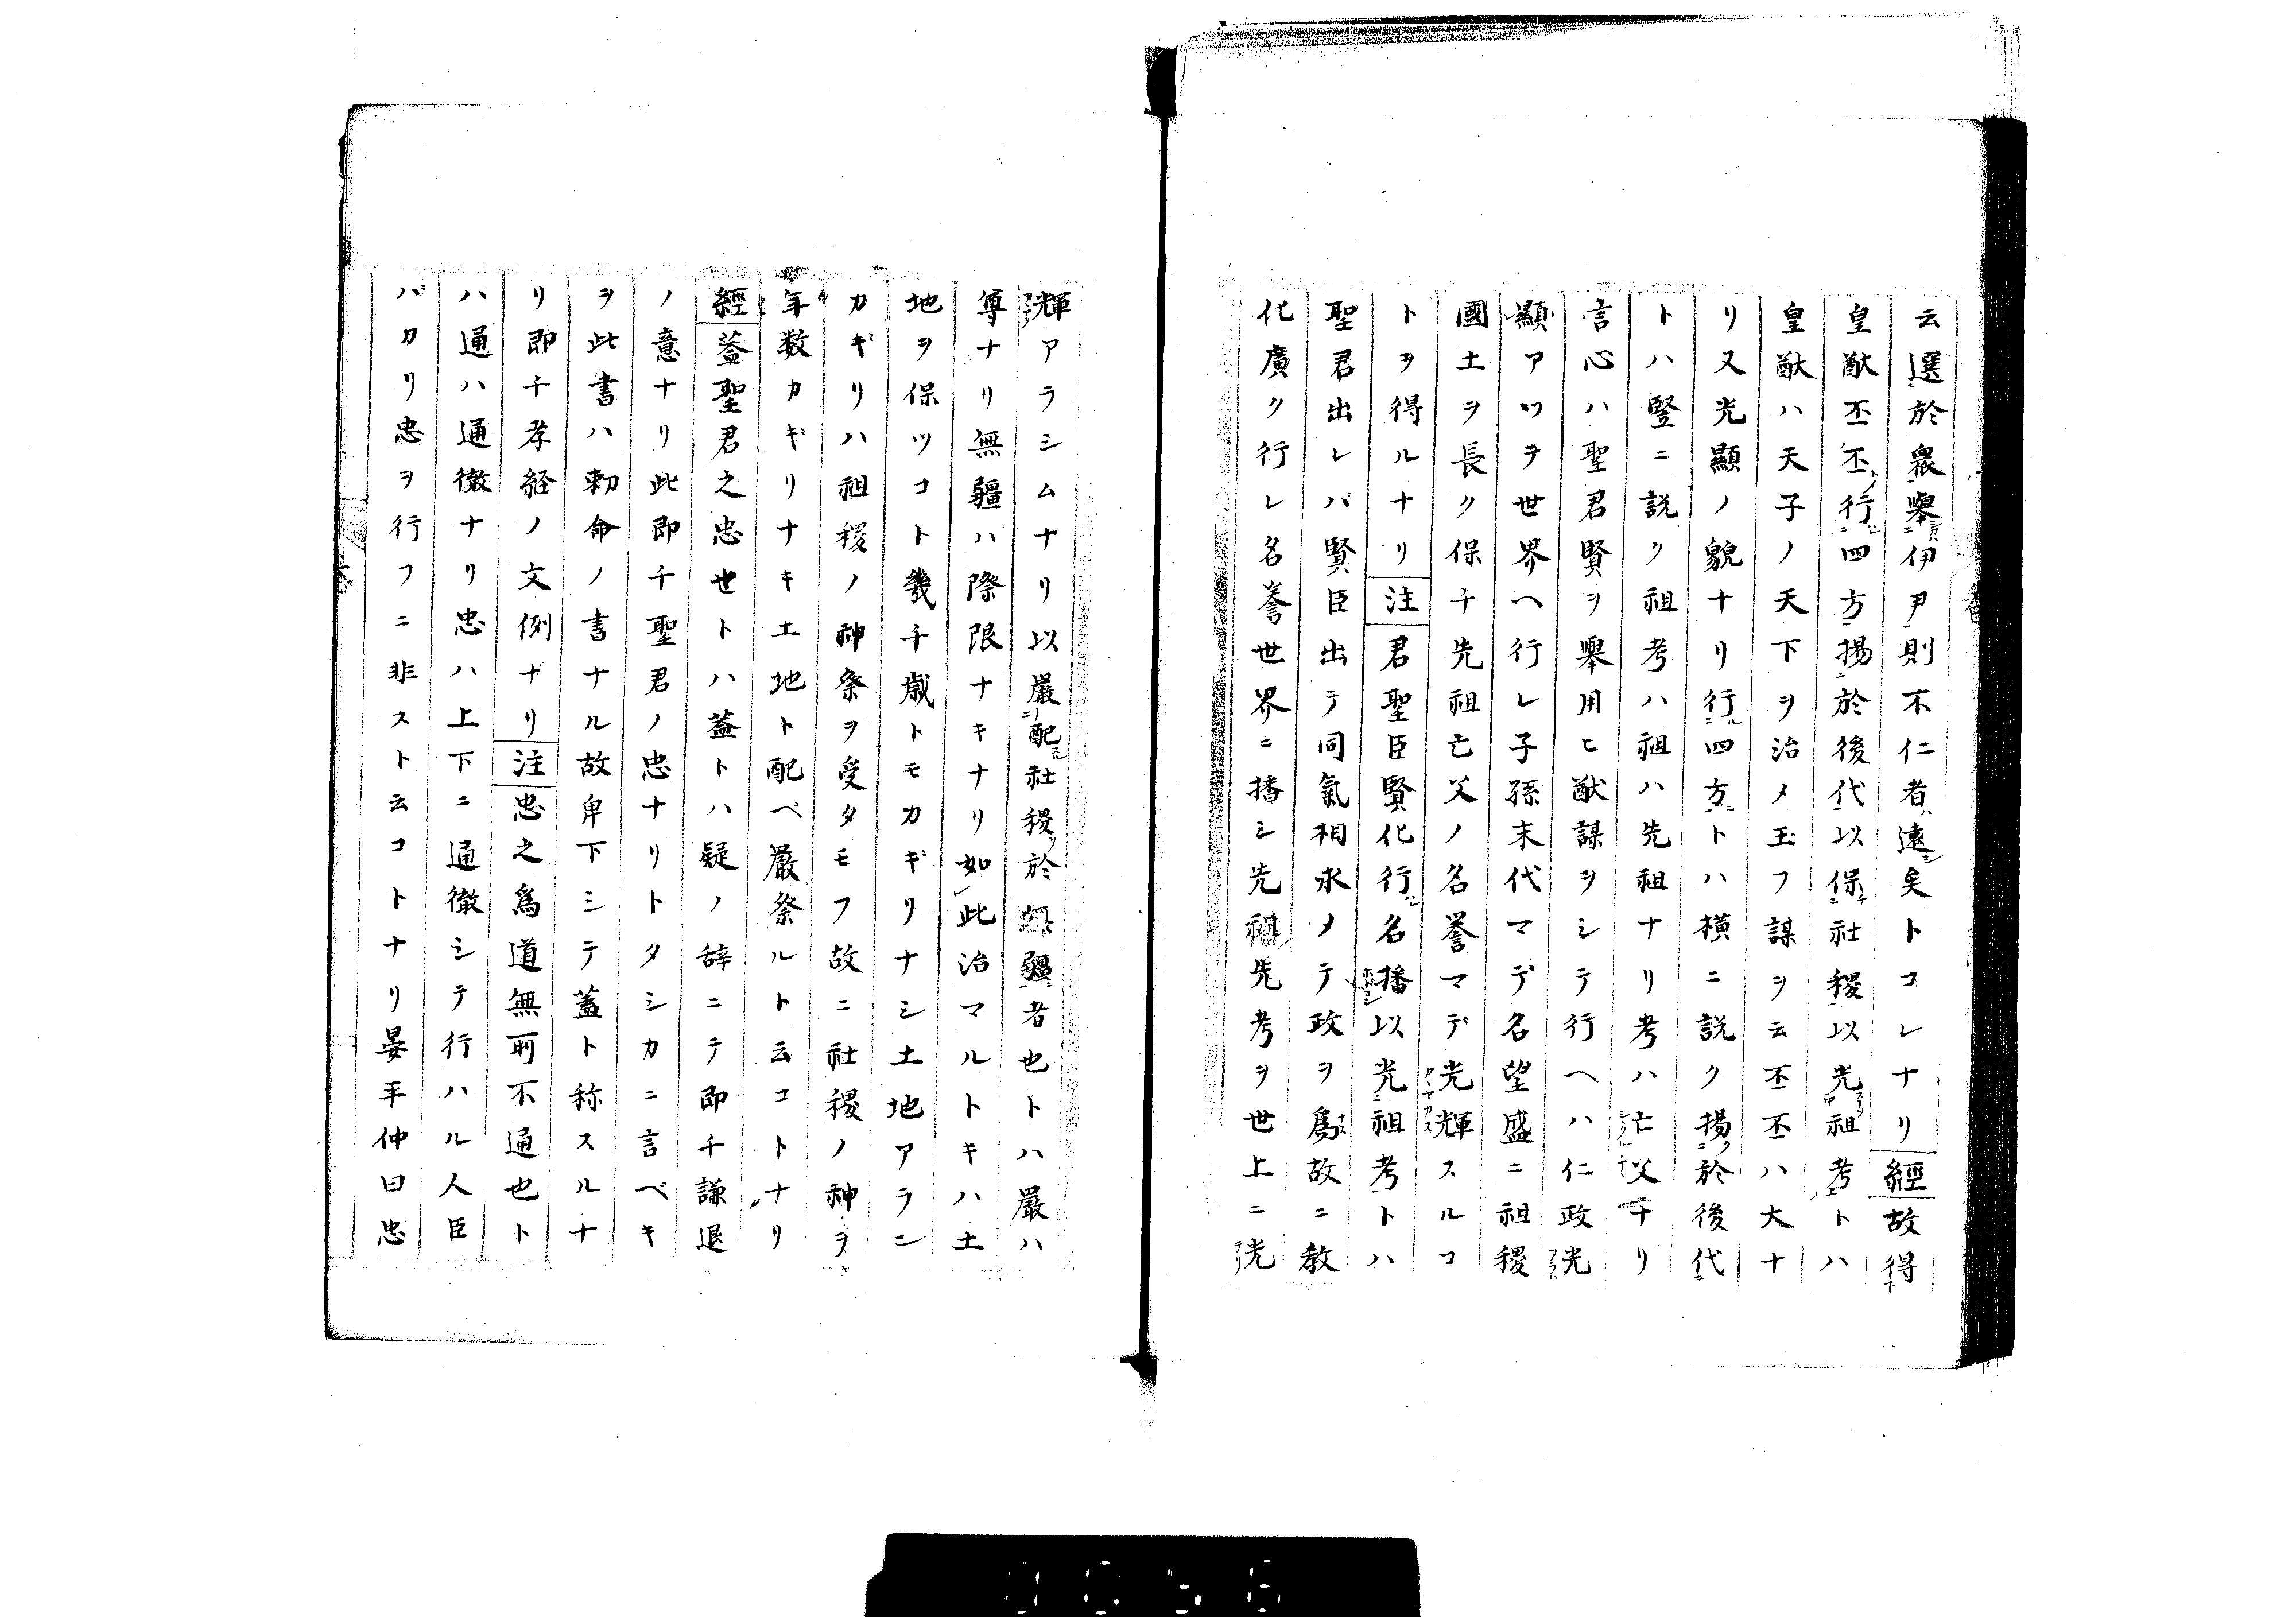 云選於衆舉伊尹則不仁者遠矣トコレナリ經故得
皇猷丕丕行四方揚於後代以保社稷以光祖考トハ
皇猷ハ天子ノ天下ヲ治メ玉フ謀ヲ云丕丕ハ大ナ
リ又光顯ノ貌ナリ行四方トハ横ニ説ク揚於後代
トハ竪ニ説ク祖考ハ祖ハ先祖ナリ考ハ亡父ナリ
言心ハ聖君賢ヲ舉用ヒ猷謀ヲシテ行ヘハ仁政光
顯アツテ世界ヘ行レ子孫末代マデ名望盛ニ祖稷
國土ヲ長ク保チ先祖亡父ノ名誉マデ光輝スルコ
トヲ得ルナリ注君聖臣賢化行名播以光祖考トハ
聖君出レバ賢臣出テ同氣相求メテ政ヲ爲故ニ教
化廣ク行レ名誉世界ニ播シ先祖先考ヲ世上ニ光
輝アラシムナリ以嚴配社稷於無疆者也トハ嚴ハ
尊ナリ無疆ハ際限ナキナリ如此治マルトキハ土
地ヲ保ツコト幾千歳トモカギリナシ土地アラン
カギリハ祖稷ノ神祭ヲ受タモフ故ニ社稷ノ神ヲ
年数カギリナキ土地ト配ベ嚴祭ルト云コトナリ
經蓋聖君之忠世トハ蓋トハ疑ノ辞ニテ即チ謙退
ノ意ナリ此即チ聖君ノ忠ナリトタシカニ言ベキ
ヲ此書ハ勅命ノ書ナル故卑下シテ蓋ト称スルナ
リ即チ孝経ノ文例ナリ注忠之爲道無所不通也ト
ハ通ハ通徹ナリ忠ハ上下ニ通徹シテ行ハル人臣
バカリ忠ヲ行フニ非ストスコトナリ晏平仲曰忠